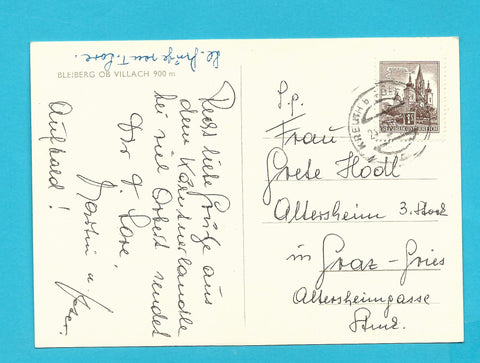 BLEIBERG OB VILLACH 900 m
Recht liebe Grüße aus
dem Kärntnerlandle
bei viel Arbeit sendet
Dir T. Lore.
Martin u.
Auf bald!
S. p.
Frau
Grete Hodl
Altersheim 3. Stock
in Graz-Gries
Altersheimgasse
KREUTH b.
REPUBLIK ÖSTERREICH